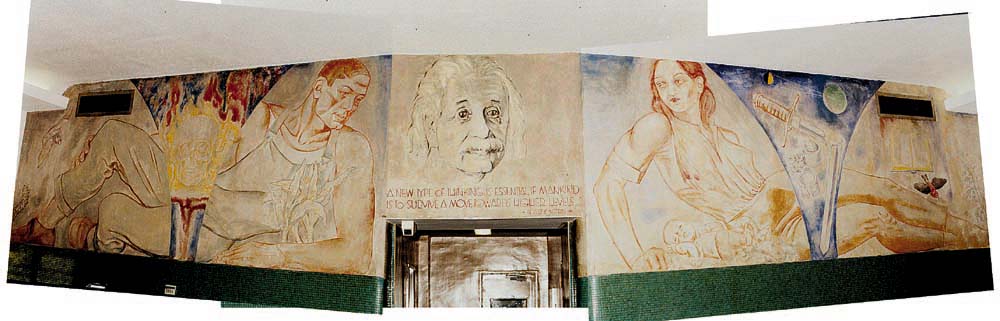 A NEW TYPE OF THINKING IS ESSENTIAL IF MANKIND
IS TO SURVIVE & MOVE TOWARDS HIGHER LEVELS